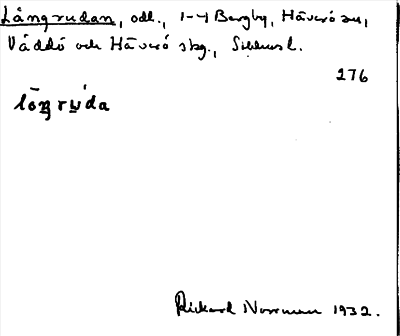 Långrudan, odl., 1-4 Bergby, Häverö sn,
Väddö och Häverö skg., Sthlms l.
276
lōŋrụ́da
Rickard Norrman 1932.